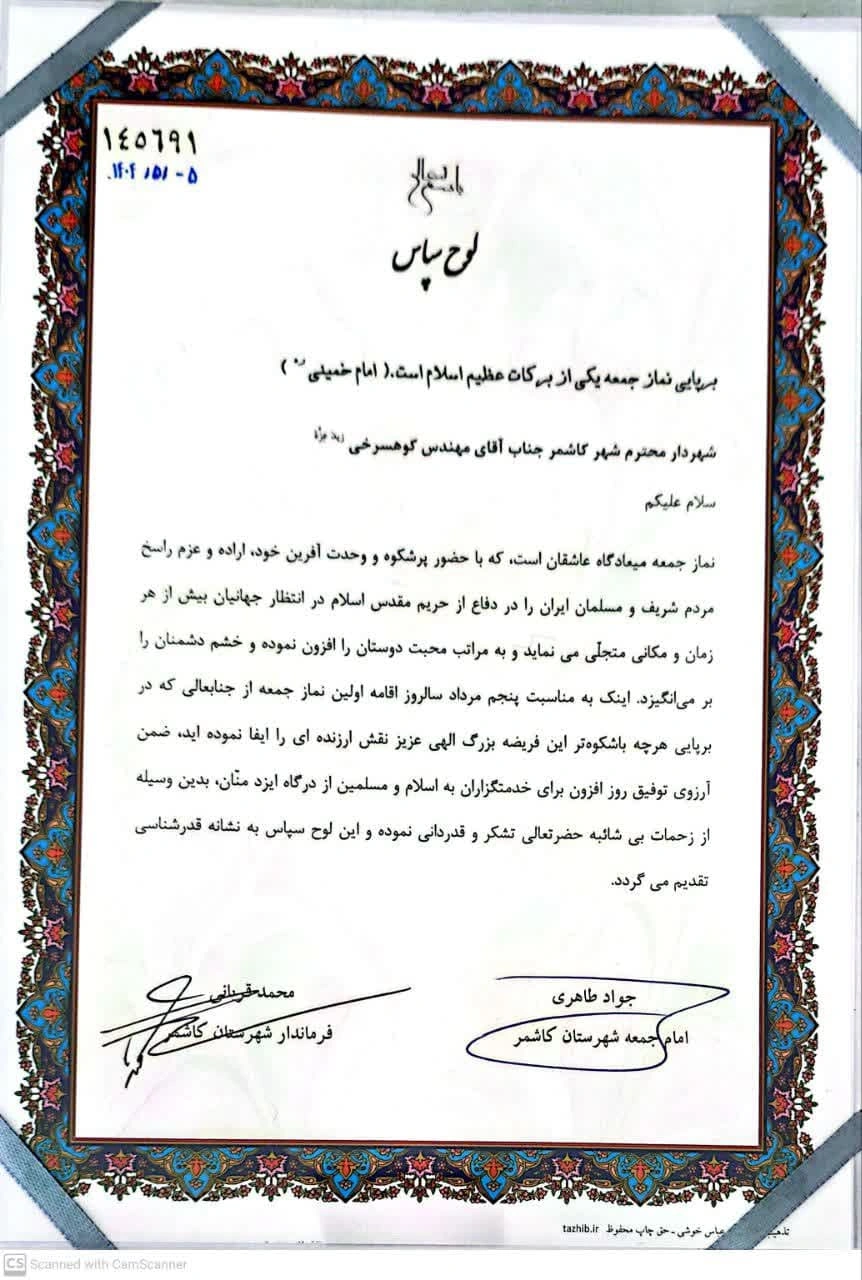 ۱۴۵۶۹۱
۱۴۰۴/۵/۰۵
باسمه تعالی
لوح سپاس
برپایی نماز جمعه یکی از برکات عظیم اسلام است.( امام خمینی ره )
شهردار محترم شهر کاشمر جناب آقای مهندس کوهسرخی زید عزّه
سلام علیکم
نماز جمعه میعادگاه عاشقان است، که با حضور پرشکوه و وحدت آفرین خود، اراده و عزم راسخ
مردم شریف و مسلمان ایران را در دفاع از حریم مقدس اسلام در انتظار جهانیان بیش از هر
زمان و مکانی متجلّی می نماید و به مراتب محبت دوستان را افزون نموده و خشم دشمنان را
بر می‌انگیزد. اینک به مناسبت پنجم مرداد سالروز اقامه اولین نماز جمعه از جنابعالی که در
برپایی هرچه باشکوه‌تر این فریضه بزرگ الهی عزیز نقش ارزنده ای را ایفا نموده اید، ضمن
آرزوی توفیق روز افزون برای خدمتگزاران به اسلام و مسلمین از درگاه ایزد منّان، بدین وسیله
از زحمات بی شائبه حضرتعالی تشکر و قدردانی نموده و این لوح سپاس به نشانه قدرشناسی
تقدیم می گردد.
جواد طاهری
امام جمعه شهرستان کاشمر
محمد قربانی
فرماندار شهرستان کاشمر
عباس خوشی - حق چاپ محفوظ tazhib.ir
CS Scanned with CamScanner